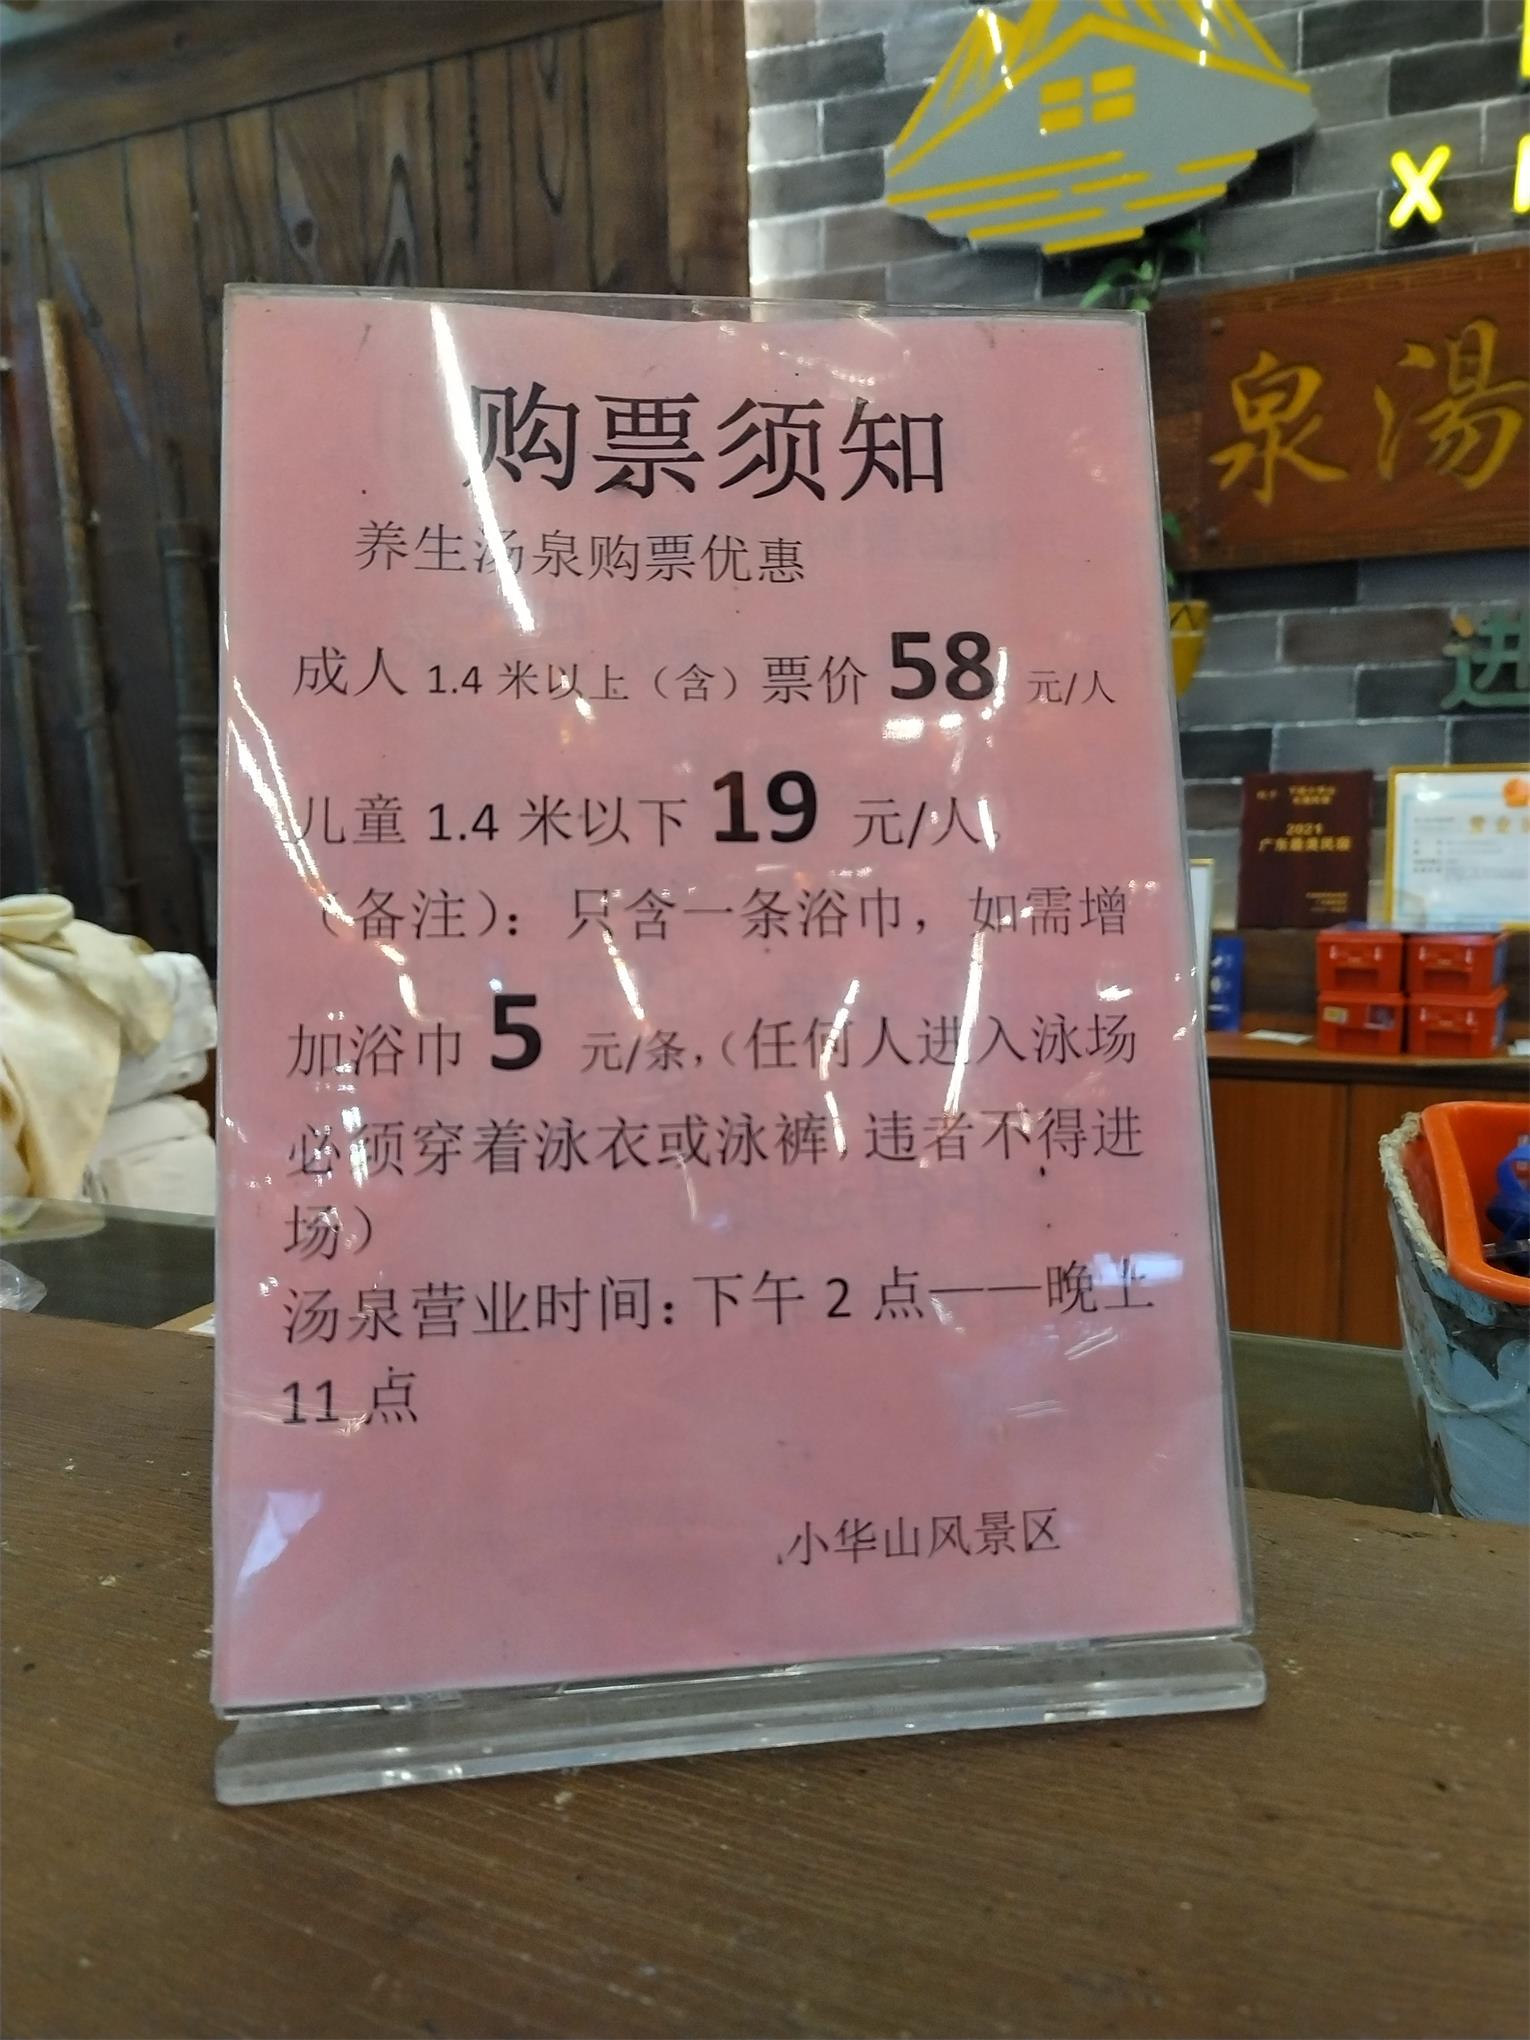 购票须知
养生汤泉购票优惠
成人 1.4 米以上（含）票价 58 元/人
儿童 1.4 米以下 19 元/人。
（备注）：只含一条浴巾，如需增
加浴巾 5 元/条，（任何人进入泳场
必须穿着泳衣或泳裤，违者不得进
场）
汤泉营业时间：下午 2 点——晚上
11 点
小华山风景区
X
泉湯
进
2021
广东最美民宿